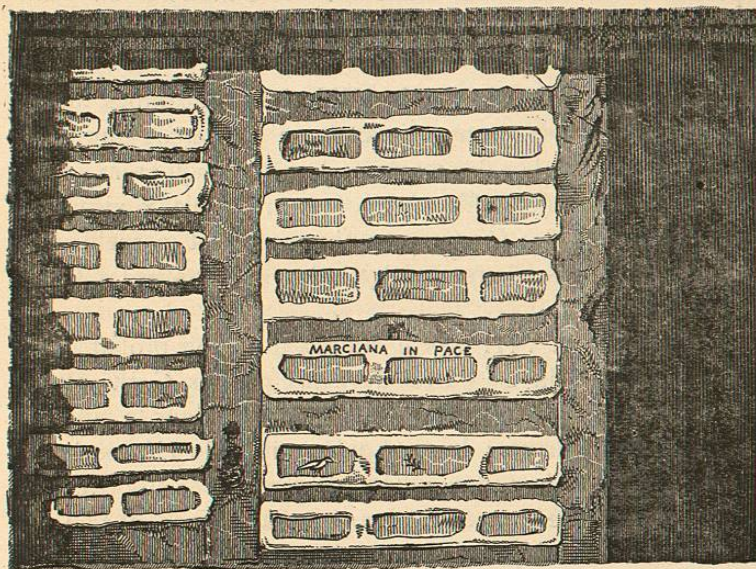 MARCIANA IN PACE